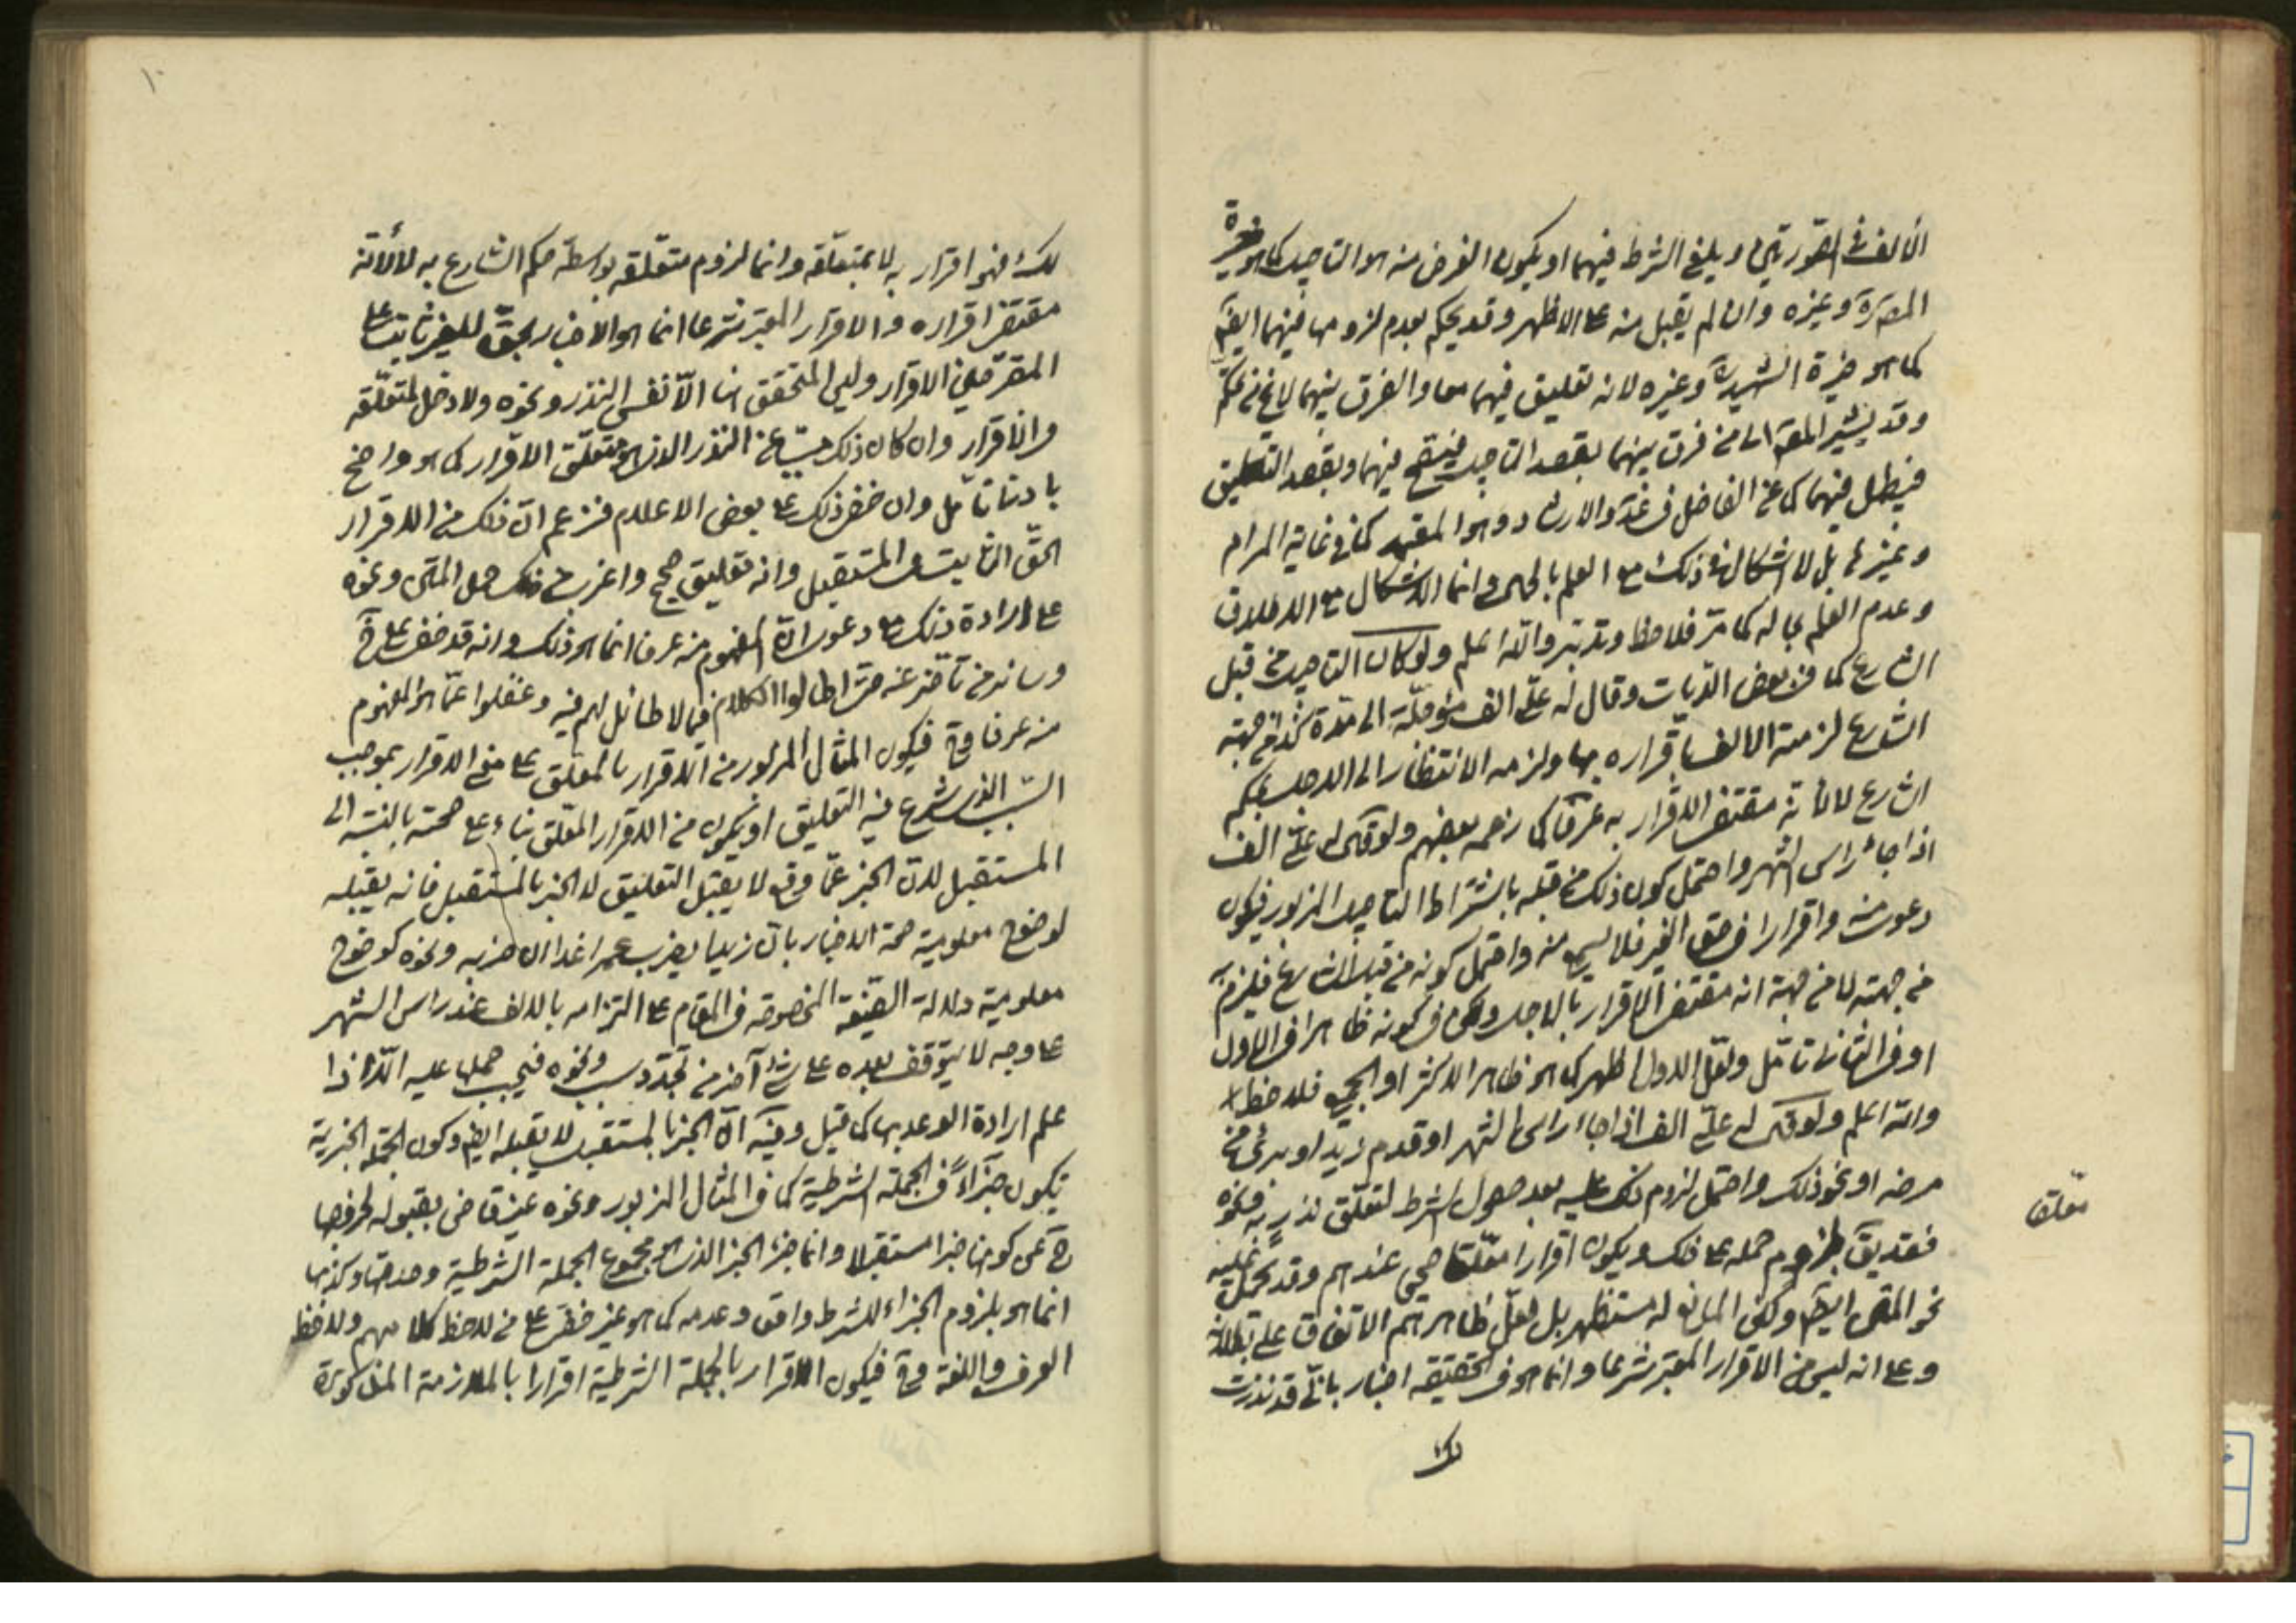 الالف في الصورتين ويلغي الشرط فيهما او يكون الغرض منه هو التاجيل كما هو خيرة
وغيره وان لم يقبل منه على الاظهر وقد يحكم بعدم لزومها فيهما ايضا
كما هو خيرة الشهيد وغيره لانه تعليق فيهما معا والفرق بينهما لا يخ
وقد يشير المقر الى من فرق بينهما بقصد التاجيل فيصح فيهما وبقصد التعليق
فيبطل فيهما كما عن الفاضل في عد والارشاد وهو المعتمد كما في غاية المرام
وغيرها بل لا اشكال في ذلك مع العلم بالحال وانما الاشكال مع الاطلاق
وعدم العلم بحاله كما مر فلاحظ وتدبر والله اعلم ولو كان التاجيل من قبل
الشارع كما في بعض الديات وقال له علي الف مؤجلة الى مدة كذا من جهة
الشارع لزمته الالف باقراره بها ولزمه الانتظار الى الاجل بحكم
الشارع لا لانه مقتضى الاقرار به عرفا كما زعمه بعضهم ولو قال له علي الف
اذا جاء راس الشهر واحتمل كون ذلك من قبله باشتراط التاجيل المزبور فيكون
دعوى منه واقرارا في حق الغير فلا يسمع منه واحتمل كونه من قبل الشارع فيلزم
من جهته لا من جهة انه مقتضى الاقرار بالاجل ولكن في كونه ظاهرا في الاول
او في الثاني تامل ولعل الاول اظهر كما هو ظاهر الاكثر او الجميع فلاحظ
والله اعلم ولو قال له علي الف اذا جاء راس الشهر او قدم زيد او برئ من
مرضه او نحو ذلك واحتمل لزوم ذلك عليه بعد حصول الشرط لتعلق نذر به ونحوه
فقد يق بلزوم حمله على ذلك ويكون اقرارا معلقا صح عندهم وقد يحمل عليه
نحو المتن ايضا ولكن المانع له مستظهر بل لعل ظاهرهم الاتفاق على بطلانه
وعلى انه ليس من الاقرار المعتبر شرعا وانما هو في الحقيقة اخبار باني قد نذرت
لك
معلقا
لك فهو اقرار به لا بمتعلقه وانما لزوم متعلقه بواسطة حكم الشارع به لا لانه
مقتضى اقراره والاقرار المعتبر شرعا انما هو الاخبار بحق للغير ثابت على
المقر حين الاقرار وليس المتحقق هنا الا نفس النذر ونحوه ولا دخل لمتعلقه
والاقرار وان كان ذلك عن النذر الذي هو متعلق الاقرار كما هو واضح
بادنى تامل وان خفي ذلك على بعض الاعلام فزعم ان ذلك من الاقرار
الحق الثابت في المستقبل وانه تعليق صحيح واغرب في ذلك حمل المتن ونحوه
على ارادة ذلك مع دعوى ان المفهوم منه عرفا انما هو ذلك وانه قد خفي على
وساير من تاخر عنه حتى اطالوا الكلام فيما لا طائل لهم فيه وغفلوا عما هو المفهوم
منه عرفا وح فيكون المثال المزبور من الاقرار بالمعلق على معنى الاقرار بموجب
السبب الذي شرع فيه التعليق او يكون من الاقرار المعلق بناء على صحته بالنسبة الى
المستقبل لان الخبر عما وقع لا يقبل التعليق لا الخبر بالمستقبل فانه يقبله
لوضوح معلومية صحة الاخبار بان زيدا يضرب عمرا غدا ان ضربه ونحوه كوضوح
معلومية دلالة الصيغة المخصوصة في المقام على التزامه بالالف عند راس الشهر
على وجه لا يتوقف بعده على شئ آخر من تجدد سبب ونحوه فيجب حملها عليه الا اذا
علم ارادة الوعد بها كما قيل وفيه ان الخبر بالمستقبل لا يقبله ايضا وكون الجملة الخبرية
تكون جزاء في الجملة الشرطية كما في المثال المزبور ونحوه غير قاض بقبوله لخروجها
ح عن كونها خبرا مستقبلا وانما جزء الخبر الذي هو مجموع الجملة الشرطية وصدقها وكذبها
انما هو بلزوم الجزاء للشرط واقعا وعدمه كما هو غير خفي على من لاحظ كلامهم ولاحظ
العرف واللغة وح فيكون الاقرار بالجملة الشرطية اقرارا بالملازمة المذكورة